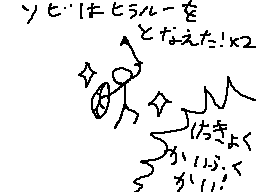 ソピーはヒラルーを
となえた!×2
はっきょく
かいふく
かい!